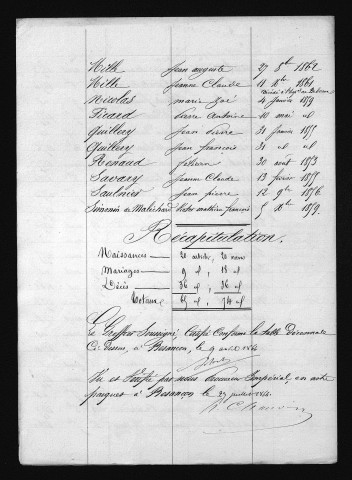 Mille Jean auguste 27 8bre 1862
Mille Jeanne Claude 11 Xbre 1861
Nicolas Marie Zoé 4 Janvier 1859
Picard Pierre Antoine 10 mai id
Quillery Jean Pierre 31 Janvier 1855
Quillery Jean François 31 id id
Renaud 20 aout 1853
Savary Jeanne Claude 13 février 1855
Saulnier Jean pierre 12 9bre 1856
mathieu François 5 Xbre 1859
Récapitulation.
Naissances 20 articles, 20 noms
Mariages 9 id, 18 id
Décès 36 id, 36 id
Totaux 65 id, 74 id
Le Greffier Soussigné, Certifie Conforme la Table Décennale
Ci-Dessus, à Besançon, le 9 1864
Vu et Vérifié par nous Procureur Impérial, en notre
parquet à Besançon le 27 juillet 1864.